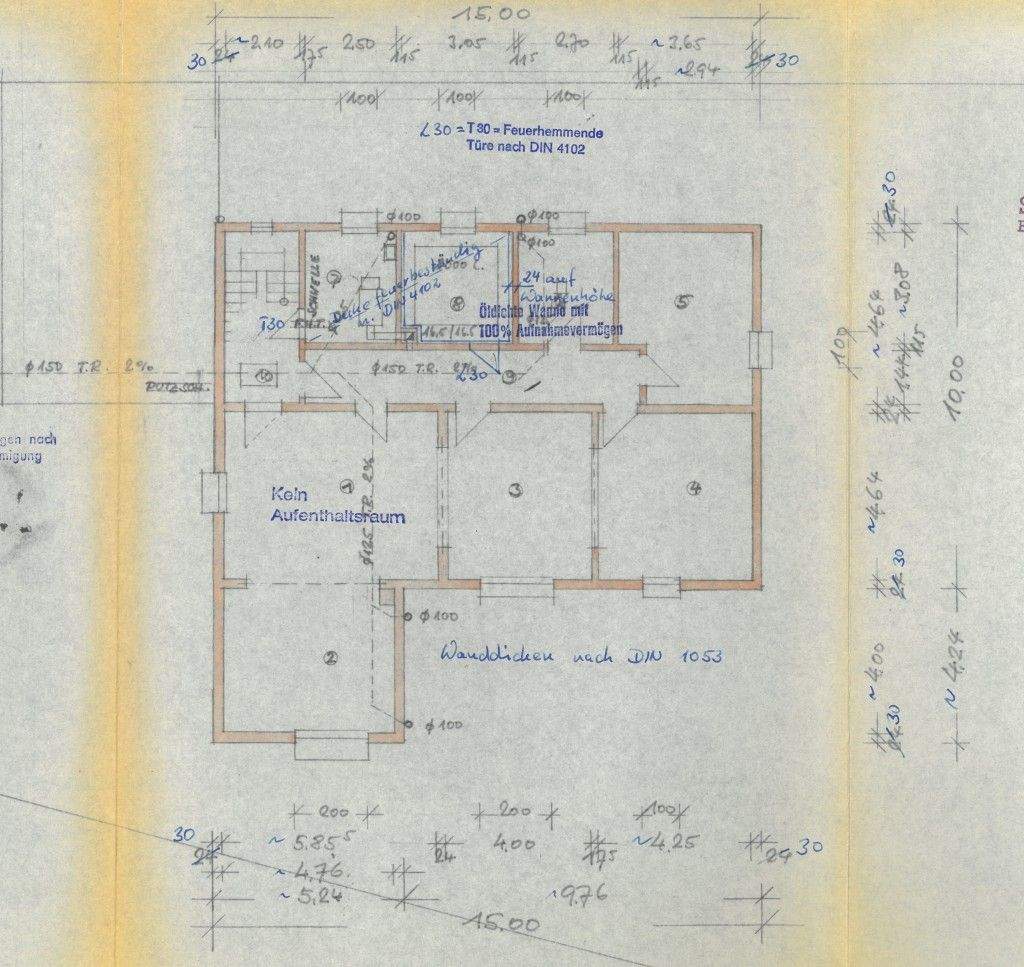 15,00
30 24 ~2.10 175 2.50 115 3.05 115 2.70 115 ~3.65 24 30
115 ~2.94
100 100 100
L30 = T30 = Feuerhemmende
Türe nach DIN 4102
ϕ100 ϕ100
ϕ100
SCHWELLE
7
Decke feuerbeständig
n. DIN 4102
000 L.
8
24 auf
Wannenhöhe
Öldichte Wanne mit
100% Aufnahmevermögen
5
T30
16.5/16.5
ϕ150 T.R. 2%
PUTZSCH.
10
ϕ150 T.R. 2%
L30
9
gen nach
migung
1
Kein
Aufenthaltsraum
ϕ125 T.R. 2%
3
4
2
ϕ100
ϕ100
Wanddicken nach DIN 1053
24 30
~4.64
~3.08
115
24
144
100
10.00
~4.64
24 30
~4.00
~4.24
24 30
200 200 100
30 24 ~5.85⁵ 24 4.00 175 ~4.25 24 30
~4.76
~5.24 ~9.76
15.00